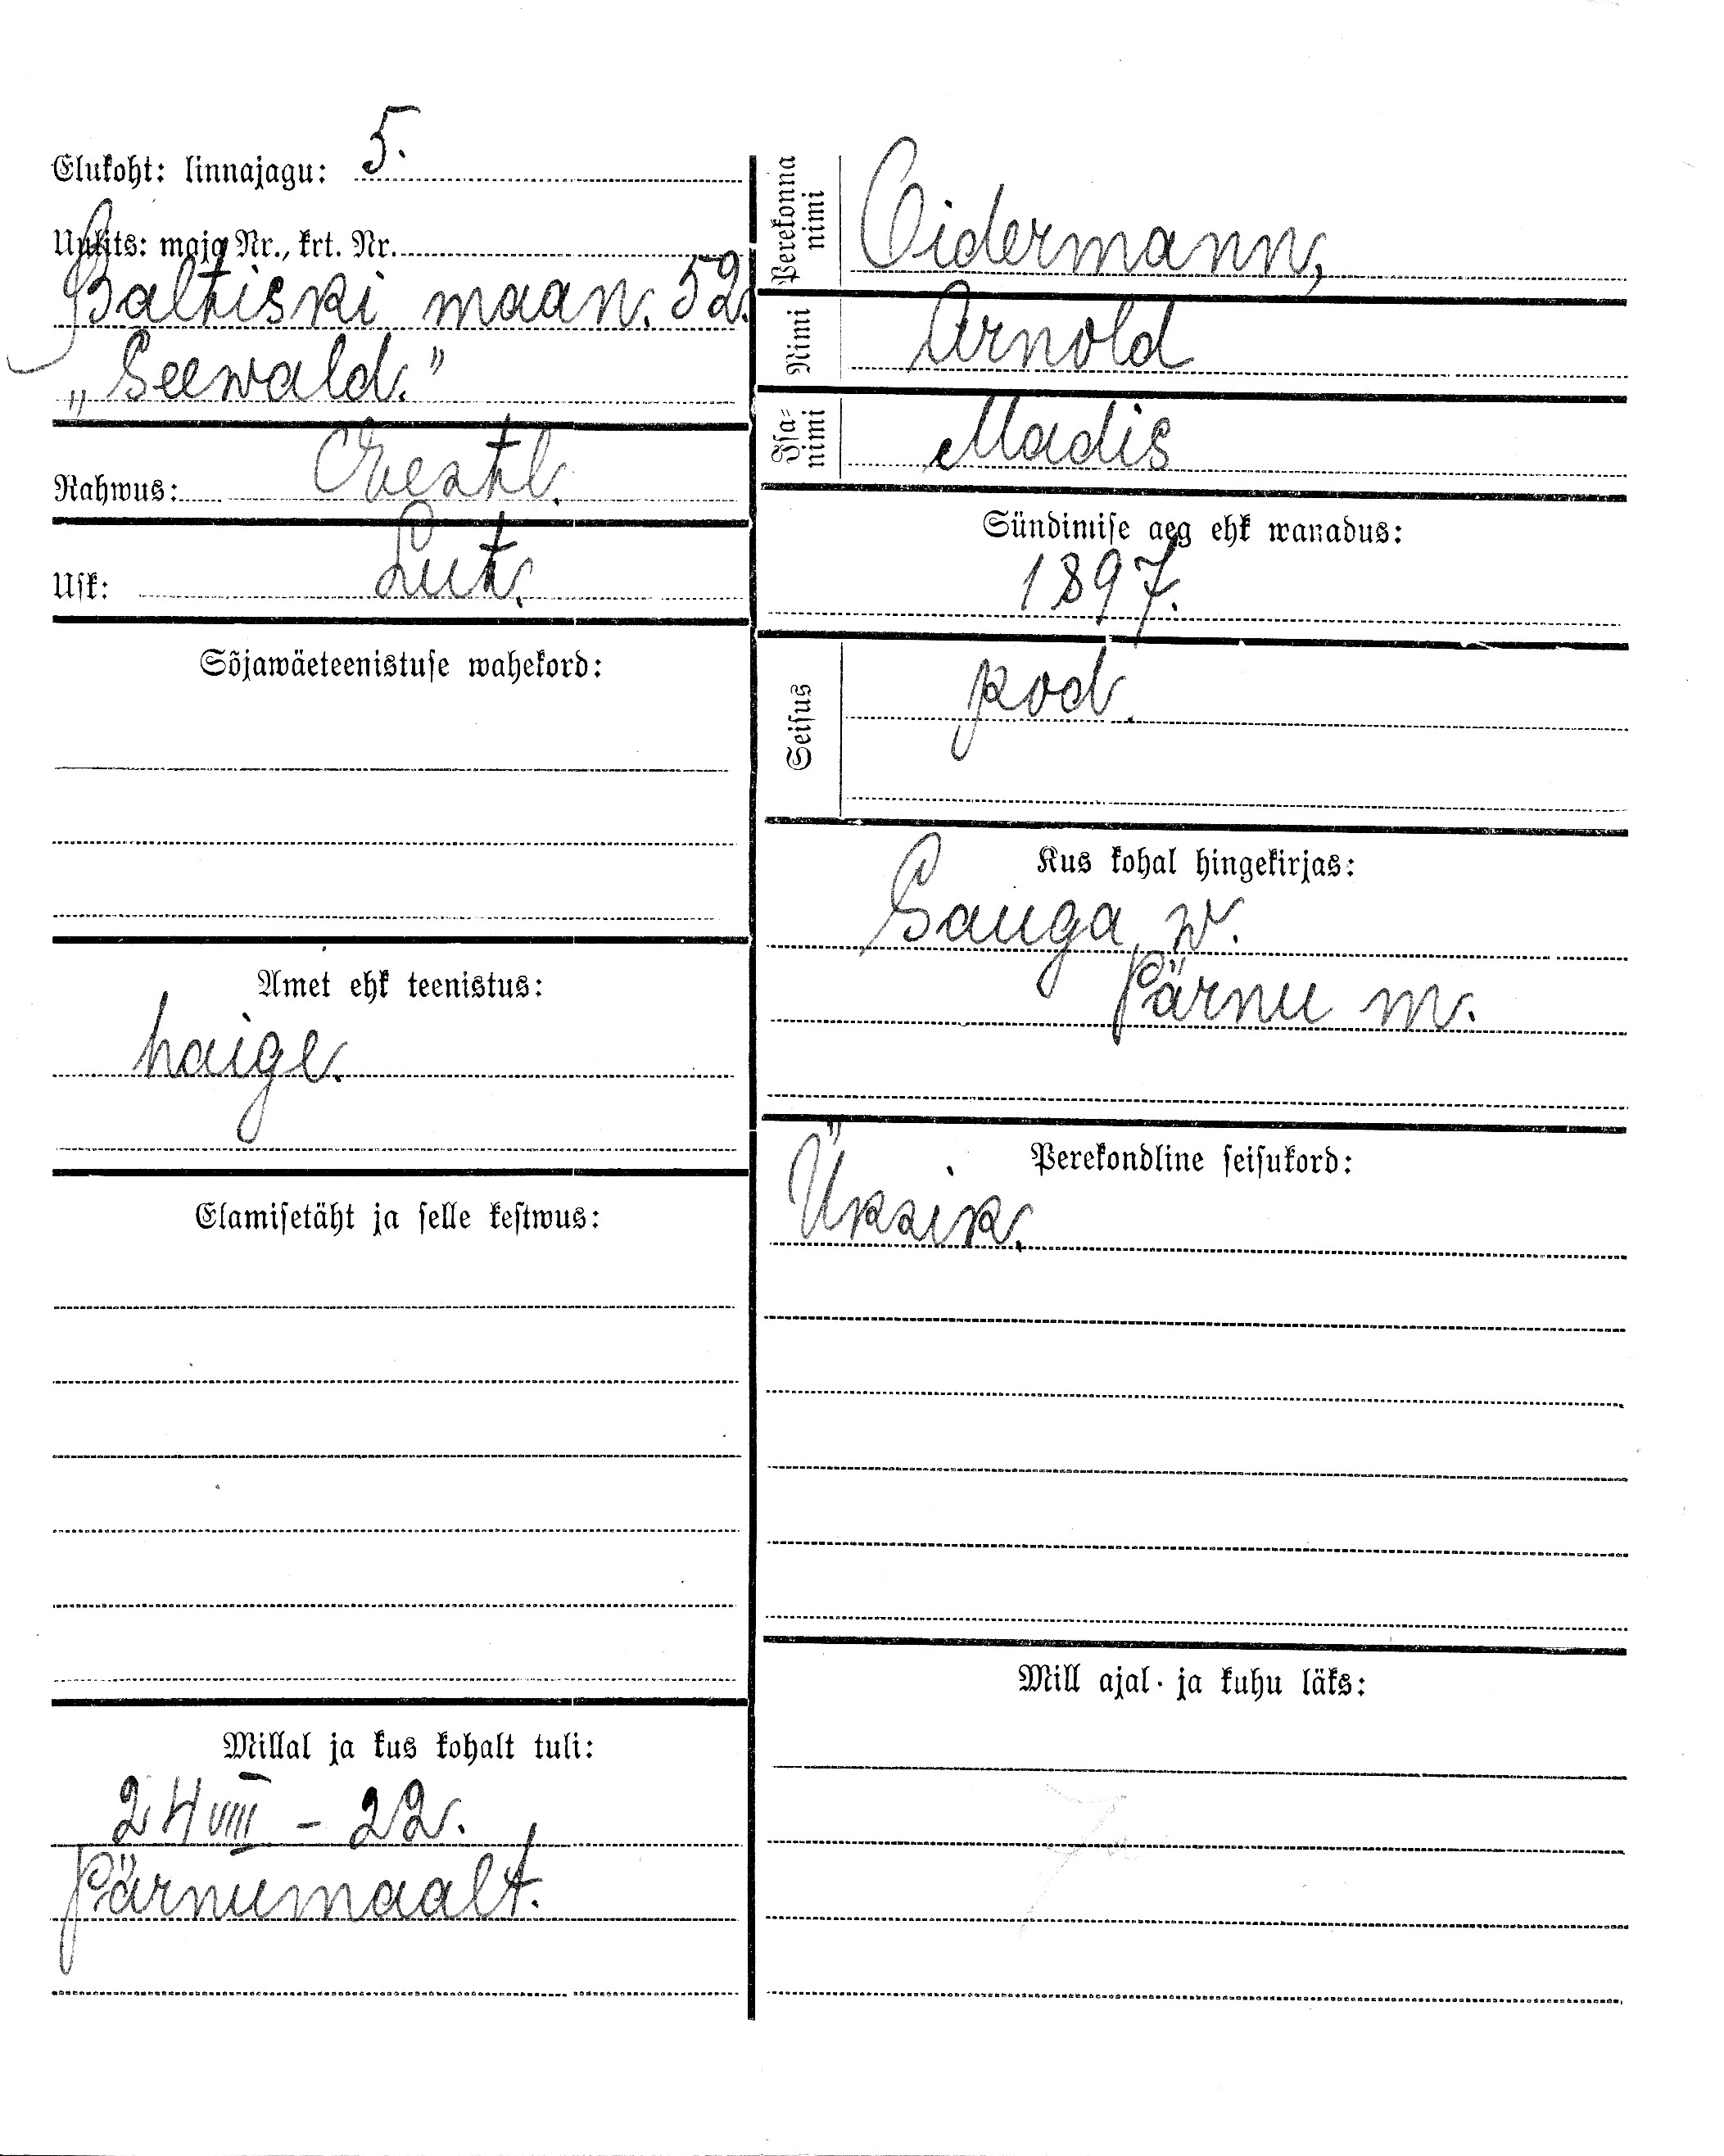 Elukoht: linnajagu: 5.
Uulits: maja Nr., krt. Nr.
Baltiski maan. 52.
„Seewald."
Rahwus: Eestl.
Usk: Lut.
Sõjawäeteenistuse wahekord:
Amet ehk teenistus:
haige.
Elamisetäht ja selle kestwus:
Millal ja kus kohalt tuli:
24 VIII - 22.
Pärnumaalt.
Perekonna nimi Oidermann,
Nimi Arnold
Isa-nimi Madis
Sündimise aeg ehk wanadus:
1897.
Seisus kod.
Kus kohal hingekirjas:
Sauga w.
Pärnu m.
Perekondline seisukord:
Üksik.
Mill ajal ja kuhu läks: